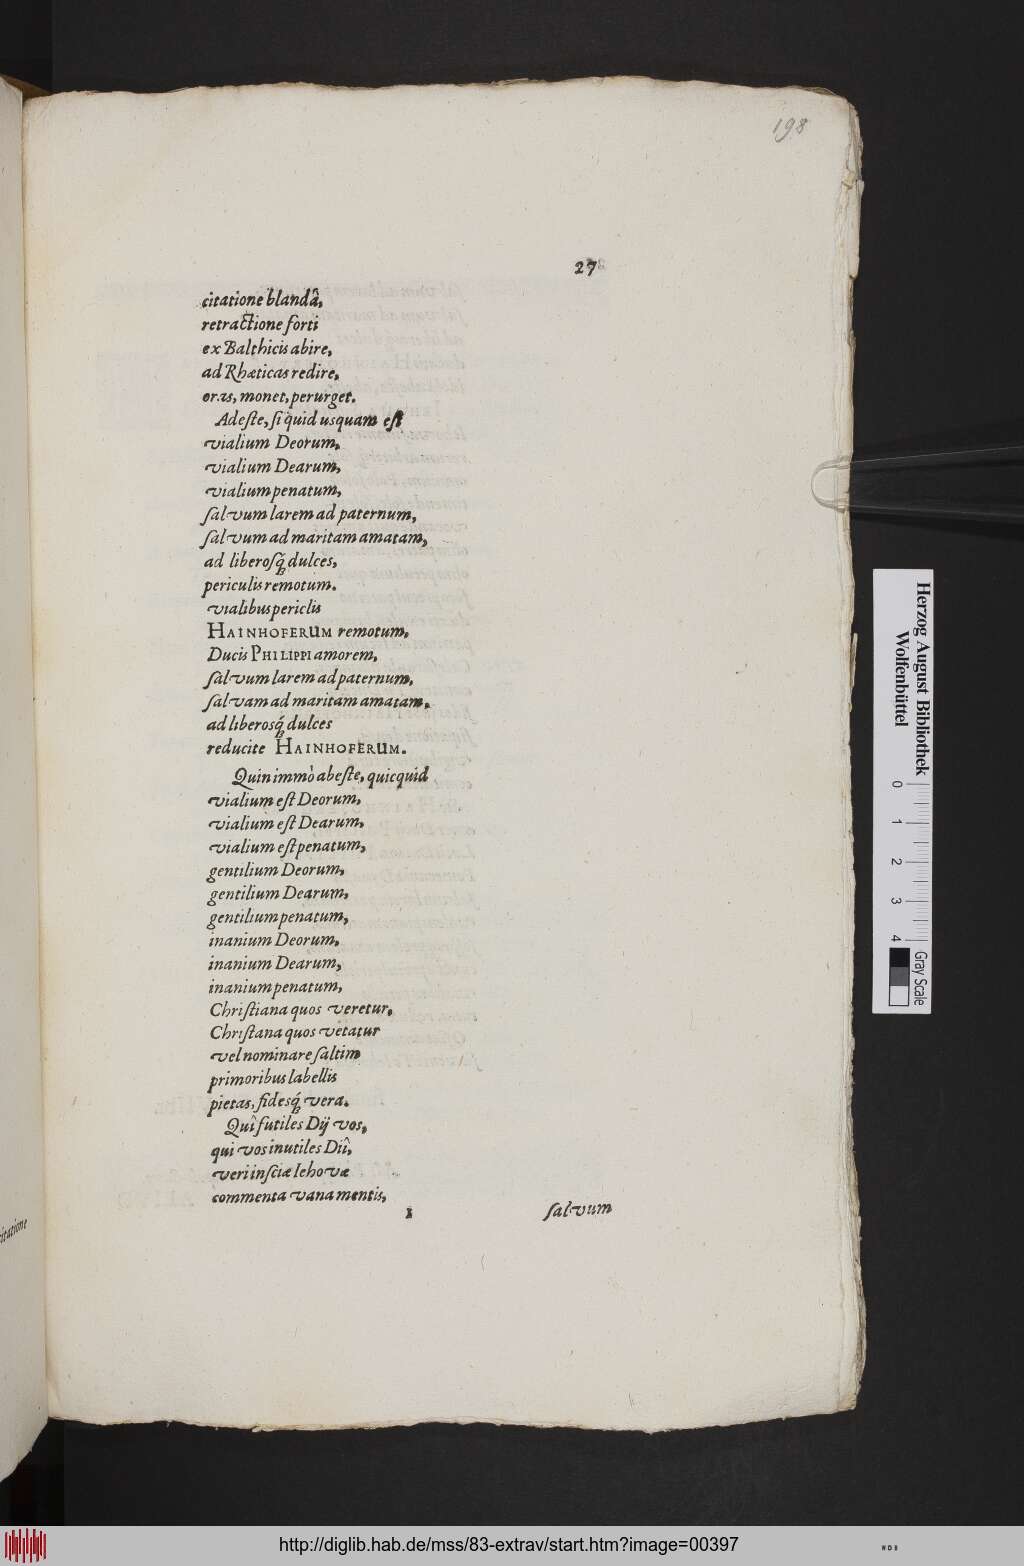 198
27
citatione blandâ,
retractione forti
ex Balthicis abire,
ad Rhæticas redire,
oras, monet, perurget.
Adeste, si quid usquam est
vialium Deorum,
vialium Dearum,
vialium penatum,
salvum larem ad paternum,
salvum ad maritam amatam,
ad liberosq́; dulces,
periculis remotum.
vialibus periclis
HAINHOFERUM remotum,
Ducis PHILIPPI amorem,
salvum larem ad paternum,
salvam ad maritam amatam,
ad liberosq́; dulces
reducite HAINHOFERUM.
Quin immò abeste, quicquid
vialium est Deorum,
vialium est Dearum,
vialium est penatum,
gentilium Deorum,
gentilium Dearum,
gentilium penatum,
inanium Deorum,
inanium Dearum,
inanium penatum,
Christiana quos veretur,
Christana quos vetatur
vel nominare saltim
primoribus labellis
pietas, fidesq́; vera.
Quî futiles Dij vos,
qui vos inutiles Diî,
veri insciæ Iehovæ
commenta vana mentis,
salvum
citatione
Herzog August Bibliothek
Wolfenbüttel
0 1 2 3 4
Gray Scale
http://diglib.hab.de/mss/83-extrav/start.htm?image=00397